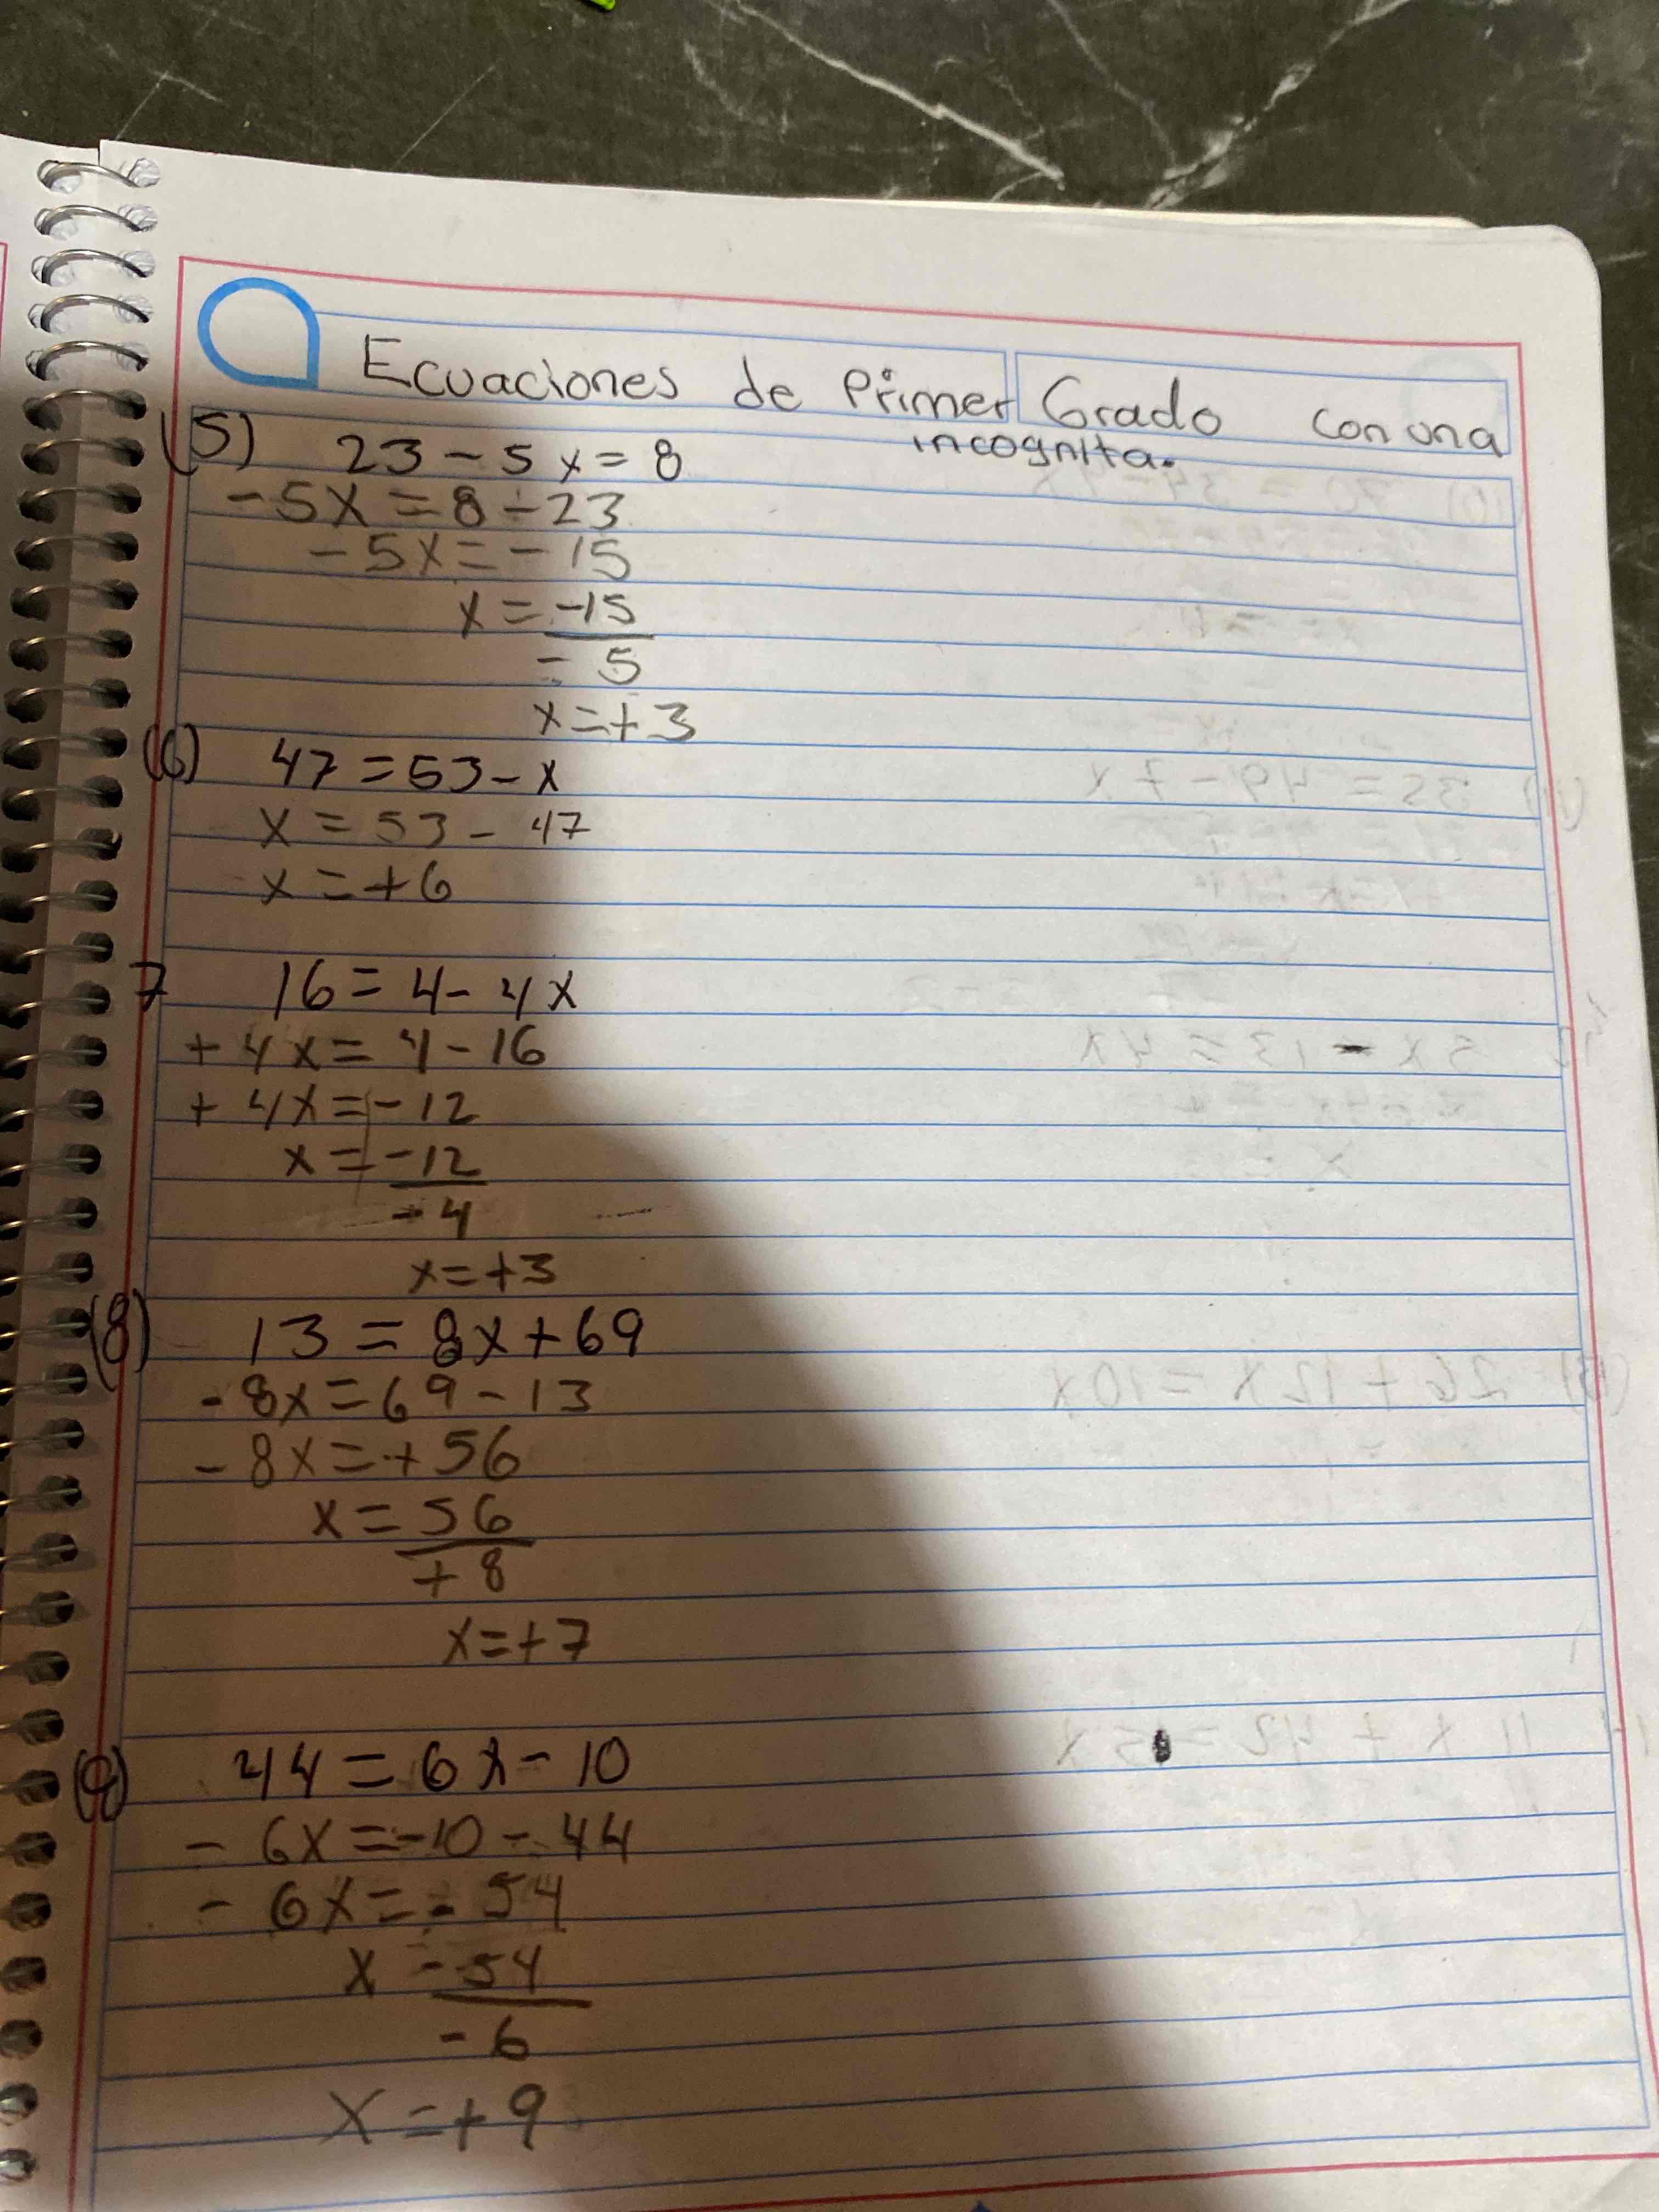 Ecuaciones de Primer Grado con una
incognita.
(5) 23 - 5x = 8
- 5x = 8 - 23
- 5x = - 15
x = -15
- 5
x = + 3
(6) 47 = 53 - x
x = 53 - 47
x = + 6
7 16 = 4 - 4x
+ 4x = 4 - 16
+ 4x = - 12
x = -12
- 4
x = + 3
(8) 13 = 8x + 69
- 8x = 69 - 13
- 8x = + 56
x = 56
+ 8
x = + 7
(9) 44 = 6x - 10
- 6x = - 10 - 44
- 6x = - 54
x - 54
- 6
x = + 9